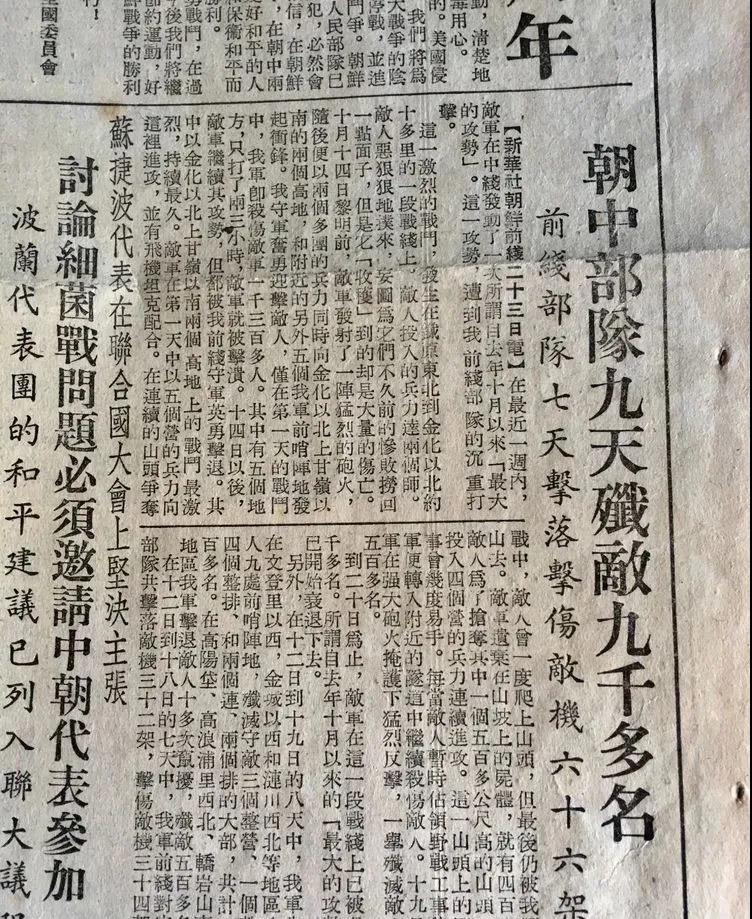 年
動，清楚地
毒用心。
的。美國侵
我們將爲
大戰爭的陰
停戰，並進
爭。朝鮮
人民部隊已
犯，必然會
信，在朝鮮
，在朝中兩
愛好和平的人
和保衛和平而
勝利。
勇戰鬥，在過
今後我們將繼
節約運動，好
鮮戰爭的勝利
！
全國委員會
朝中部隊九天殲敵九千多名
前綫部隊七天擊落擊傷敵機六十六架
【新華社朝鮮前綫二十三日電】在最近一週內，
敵軍在中綫發動了一次所謂自去年十月以來「最大
的攻勢」。這一攻勢，遭到我前綫部隊的沉重打
擊。
這一激烈的戰鬥，發生在鐵原東北到金化以北約
十多里的一段戰綫上，敵人投入的兵力達兩個師。
敵人惡狠狠地撲來，妄圖爲它們不久前的慘敗撈回
一點面子，但是它「收獲」到的却是大量的傷亡。
十月十四日黎明前，敵軍發射了一陣猛烈的砲火，
隨後便以兩個多團的兵力同時向金化以北上甘嶺以
南的兩個高地，和附近的另外五個我軍前哨陣地發
起衝鋒。我守軍奮勇迎擊敵人，僅在第一天的戰鬥
中，我軍即殺傷敵軍一千三百多人。其中有五個地
方，只打了兩三小時，敵軍就被擊潰。十四日以後，
敵軍繼續其攻勢，但都被我前綫守軍英勇擊退。其
中以金化以北上甘嶺以南兩個高地上的戰鬥最激
烈，持續最久。敵軍在第一天中以五個營的兵力向
這裡進攻，並有飛機坦克配合。在連續的山頭爭奪
戰中，敵人曾一度爬上山頭，但最後仍被我
山去。敵軍遺棄在山坡上的屍體，就有四百
敵人爲了搶奪其中一個五百多公尺高的山頭
投入四個營的兵力連續進攻。這一山頭上的
事曾幾度易手。每當敵人暫時佔領野戰工事
軍便轉入附近的隧道中繼續殺傷敵人。十九
軍在强大砲火掩護下猛烈反擊，一舉殲滅敵
五百多名。
到二十日爲止，敵軍在這一段戰綫上已被
千多名。所謂自去年十月以來的「最大的攻
已開始衰退下去。
另外，在十二日到十九日的八天中，我軍
在文登里以西，金城以西和漣川西北等地區
人九處前哨陣地，殲滅守敵三個整營。一個
四個整排、和兩個連、兩個排的大部，共計
百多名。在高陽垈、高浪浦里西北、轎岩山
地區我軍擊退敵人十多次竄擾，殲敵五百多名
在十二日到十八日的七天中，我軍前綫對
部隊共擊落敵機三十二架，擊傷敵機三十四架
蘇捷波代表在聯合國大會上堅決主張
討論細菌戰問題必須邀請中朝代表參加
波蘭代表團的和平建議已列入聯大議程